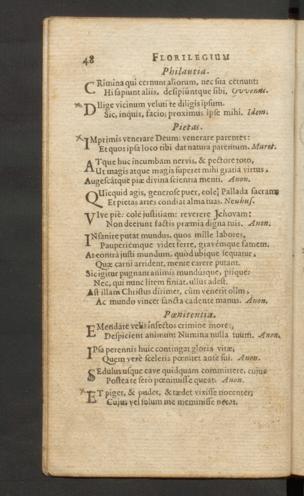 48 FLORILEGIUM
Philautia.
CRimina qui cernunt aliorum, nec sua cernunt:
Hi sapiunt aliis, desipiúntque sibi. Ovvenus.
DIlige vicinum veluti te diligis ipsum.
Sic, inquis, facio; proximus ipse mihi. Idem.
Pietas.
IMprimis venerare Deum: venerare parentes:
Et quos ipsa loco tibi dat natura parentum. Muret.
ATque huc incumbam nervis, & pectore toto,
Ut magis atque magis superet mihi gratia virtus,
Augescátque piæ divina scientia menti. Anon.
QUicquid agis, generose puer, cole; Pallada sacram
Et pietas artes condiat alma tuas. Neuhus.
VIve piè: cole justitiam: reverere Jehovam:
Non deerunt factis præmia digna tuis. Anon.
INsanire putat mundus, quos mille labores,
Pauperiémque videt ferre, gravémque famem.
At contra justi mundum, quòd ubique sequatur,
Quæ carni arrident, mente carere putant.
Sic igitur pugnant animis mundúsque, piique:
Nec, qui nunc litem finiat, ullus adest.
Ast illam Christus dirimet, cùm venerit olim,
Ac mundo vincet sancta cadente manus. Anon.
Pœnitentia.
EMendare velis infectos crimine mores,
Despicient animum Numina nulla tuum. Anon.
IPsa perennis huic contingat gloria vitæ,
Quem verè sceleris pœnitet ante sui. Anon.
SEdulus usque cave quidquam committere, cujus
Postea te serò pœnituisse queat. Anon.
ET piget, & pudet, & tædet vixisse nocenter;
Cujus vel solum me meminisse necat.